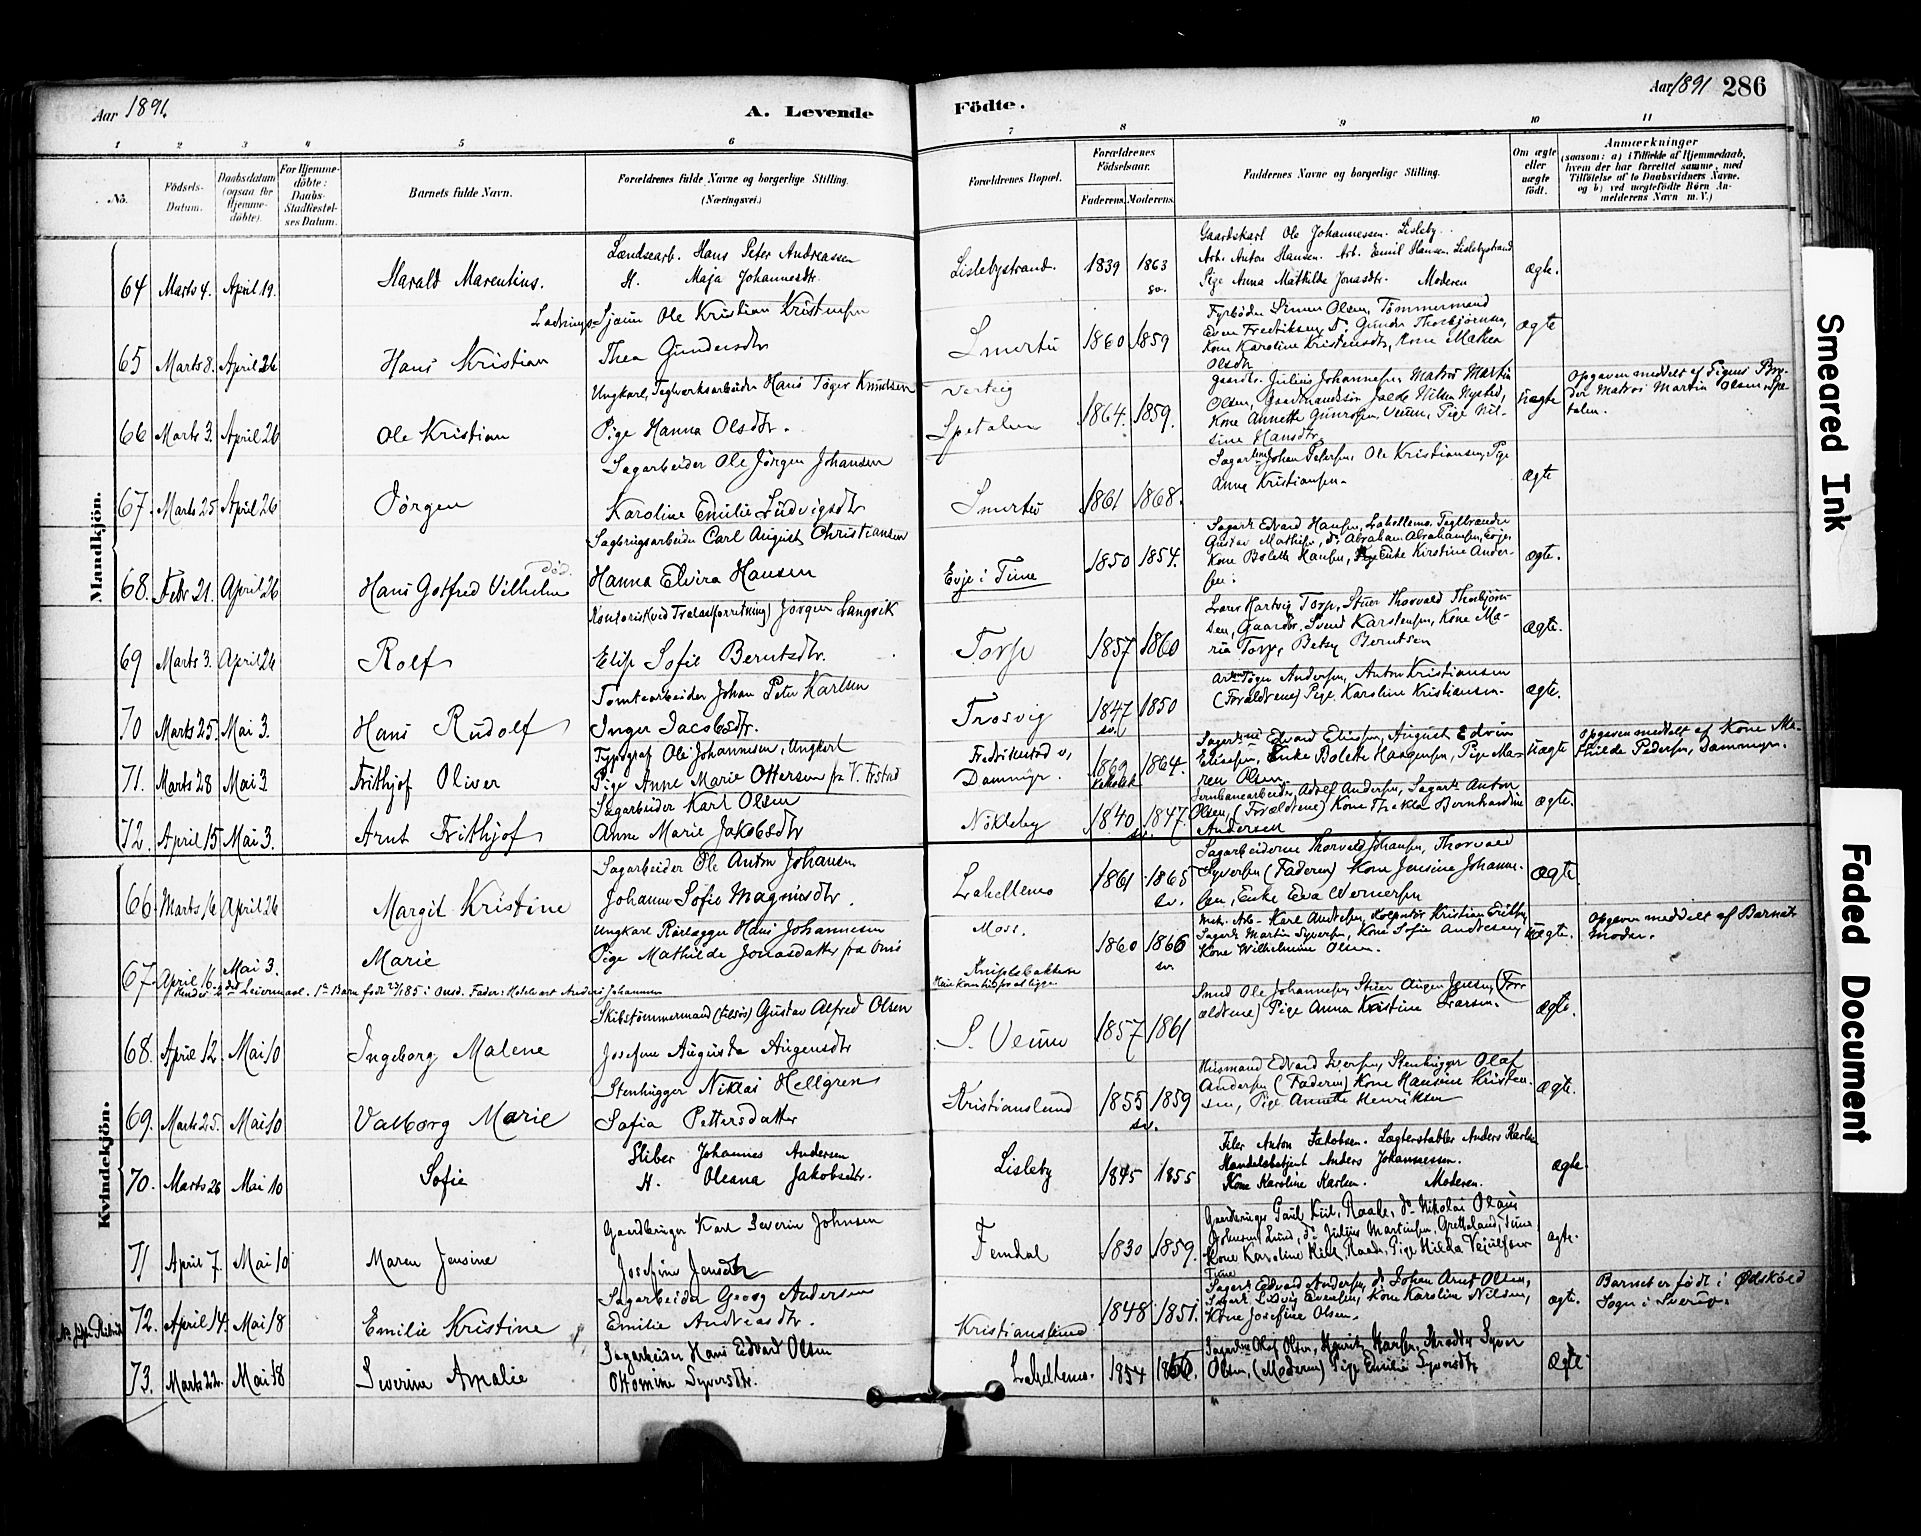 Aar 1891.
A. Levende
Födte.
Aar 1891 286
1 2 3 4 5 6 7 8 9 10 11
No. Födsels-Datum. Daabsdatum (ogsaa for Hjemmedöbte). For Hjemmedöbte: Daabs-Stadfæstelses Datum. Barnets fulde Navn. Forældrenes fulde Navne og borgerlige Stilling. (Næringsvei.) Forældrenes Bopæl. Forældrenes Födselsaar. Faderens. Moderens. Faddernes Navne og borgerlige Stilling. Om ægte eller uægte födt. Anmærkninger (saasom: a) i Tilfælde af Hjemmedaab, hvem der har forrettet samme, med Tilföielse af to Daabsvidners Navne. og b) ved uægtefödte Börn Anmelderens Navn m. V.)
Mandkjön.
Landsearb. Hans Peter Andreassen
Gaardskarl Ole Johannessen. Lisleby.
64 Marts 4. April 19. Harald Marentius. H. Maja Johannesdtr. Lislebystrand. 1839 1863 sv. Arb. Anton Hansen. Arb. Emil Hansen Lislebystrand
Pige Anna Mathilde Jonasdtr. Moderen ægte.
Ladnings-Sjauer Ole Kristian Kristensen
Fyrböder Simen Olsen, Tömmermand
65 Marts 8. April 26 Hans Kristian Thea Gundersdtr Smertu 1860 1859 Even Fredriksen, do Gunder Thorbjörnsen,
Kone Karoline Kristensdtr, Kone Mathea
Olsdtr ægte
Ungkarl, Teglverksarbeider Hans Töger Knudsen
Gaardbr. Julius Johannesen, Matros Martin
66 Marts 3. April 26 Ole Kristian Pige Hanna Olsdtr. Spetalen 1864. 1859. Olsen,
Kone Annette Gunersen, Veum, Pige Nilsine Hansdtr. uægte
Opgaven meddelt af Pigens Broder Matros Martin Olsen Spetalen.
Sagarbeider Ole Jörgen Johansen
67. Marts 25 April 26 Jörgen Karoline Emilie Ludvigsdtr Smertu 1861 1868. Johan Petersen, Ole Kristiansen, Pige
Anna Kristiansen. ægte
Sagbrugsarbeider Carl August Christiansen
Sagarb. Edvard Hansen, Lahellemo, Teglbrænder
68. Febr 21. April 26 Hans Gotfred Vilhelm Död. Hanna Elvira Hansen Evje i Tune 1850 1854. Gustav Mathisen, do Abraham Abrahamsen, Evje,
Kone Bolette Hansen, Enke Kirstine Andersen. ægte.
Kontorist (ved Trælastforretning) Jörgen Langvik
Lars Hartvig Torp, Stuer Thorvald Thorbjörnsen,
69 Marts 3. April 26 Rolf Elise Sofie Berntsdtr. Torp 1857 1860 Gaardbr. Svend Karstensen, Kone Maria Torp, Betsy Berntsen ægte.
Tomtearbeider Johan Peter Karlsen
Arb. Töger Andersen, Anton Kristiansen
70 Marts 25. Mai 3. Hans Rudolf Inger Jacobsdtr. Trosvig 1847 sv. 1850 (Forældrene) Pige Karoline Kristiansen. ægte.
Typograf Ole Johannesen, Ungkarl
71. Marts 28 Mai 3 Frithjof Oliver Pige Anne Marie Ottersen fra V. Frstad Fredrikstad v, Dammyr. 1869 1864. Sagarbne Edvard Eliesen, August Edvin
Eliesen, Enke Bolette Haagensen, Pige Maren Olsen uægte Opgaven meddelt af Kone Mathilde Pedersen, Dammyr.
Sagarbeider Karl Olsen
Jernbanearbeider Adolf Andersen, Sagarb. Anton
72. April 15 Mai 3. Arnt Frithjof Anne Marie Jakobsdtr Nökleby 1840 sv. 1847. Olsen, (Forældrene) Kone Thekla Bernhardine
Andersen ægte.
Kvindekjön.
Sagarbeider Ole Anton Johansen
Sagarbeiderne Thorvald Johansen, Thorvald
66 Marts 16 April 26 Margit Kristine Johanne Sofie Magnusdtr. Lahellemo 1861 1865 sv. Syversen (Faderen) Kone Jensine Johannesen, Enke Eva Wernersen ægte.
Ungkarl Rörlægger Hans Johannesen Moss.
67. April 16. Mai 3. Marie Pige Mathilde Jonasdatter fra Onsö 1860 1866 sv. Mek. Arb. Karl Andersen, Kolportör Kristian Eriksen,
Sagarb. Martin Syversen, Kone Sofie Andresen,
Kone Wilhelmine Olsen. uægte. Opgaven meddelt af Barnets Moder.
Skibstømmermand (tilsös) Gustav Alfred Olsen
Smed Ole Johannesen, Stuer Augen Jensen, (Forældrene)
68. April 12. Mai 10 Ingeborg Malene Josefine Augusta Augensdtr S. Veum 1857 1861 Pige Anna Kristine Larsen. ægte.
Stenhugger Niklas Hellgren
Husmand Edvard Iversen, Stenhugger Olaf
69. Marts 25. Mai 10 Valborg Marie Sofia Pettersdatter Kristianslund 1855 sv. 1859 Andersen (Faderen) Kone Hansine Kristensen, Pige Annette Henriksen ægte.
Sliber Johannes Andersen
Filer Anton Jakobsen. Lægterstabler Anders Karlsen
70. Marts 26 Mai 10 Sofie H. Oleana Jakobsdtr. Lisleby 1845 1855 Handelsbetjent Anders Johannessen.
Kone Karoline Karlsen. Moderen. ægte
Gaardbruger Karl Severin Johnsen
Gaardbruger Paul Kiil, Raade, do Nikolai Olaus
71 April 7. Mai 10 Maren Jensine Josefine Jensdtr Femdal 1830 1859. Johnsen, Lund, do Julius Martinsen, Grethaland, Tune
Kone Karoline Kiil, Raade, Pige Hilda
Tune ægte.
Sagarbeider Georg Andersen
Sagarb. Edvard Andersen, do Johan Arnt Olsen,
72. April 14. Mai 18 Emilie Kristine Emilie Andreasdtr. Kristianslund 1848 1851. Sagarb. Ludvig Evensen, Kone Karoline Nilsen,
Kone Josefine Olsen. ægte. Barnet er födt i Ødskøld Sogn i Sverig.
Sagarbeider Hans Edvard Olsen
73. Marts 22. Mai 18 Severine Amalie Ottomine Syversdtr. Lahellemo. 1854 Sagarbne Olaf Olsen,
Olsen, (Moderen) Pige Emilie Syversdtr ægte
Smeared Ink
Faded Document